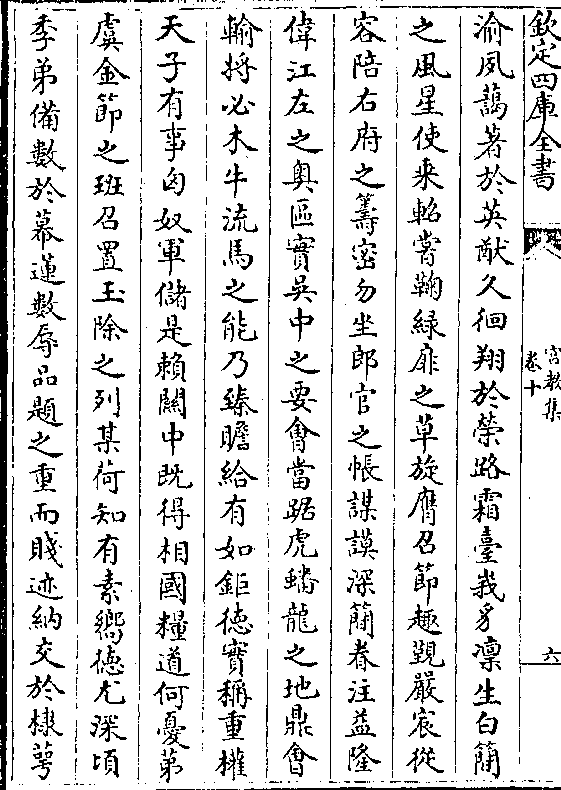 欽定四庫全書
宫教集
卷十
六
渝夙藹著於英猷久徊翔於榮路霜臺峩豸凛生白簡
之風星使乘軺嘗鞠緑扉之草旋膺召節趣覲嚴宸從
容陪右府之籌密勿坐郎官之帳謀謨深簡眷注益隆
偉江左之奥區實吳中之要㑹當踞虎蟠龍之地鼎㑹
輸將必木牛流馬之能乃臻贍給有如鉅德實稱重權
天子有事匈奴軍儲是賴關中既得相國糧道何憂第
虞金節之班召置玉除之列某荷知有素嚮德尤深頃
季弟備數於幕蓮數辱品題之重而賤迹納交於棣萼